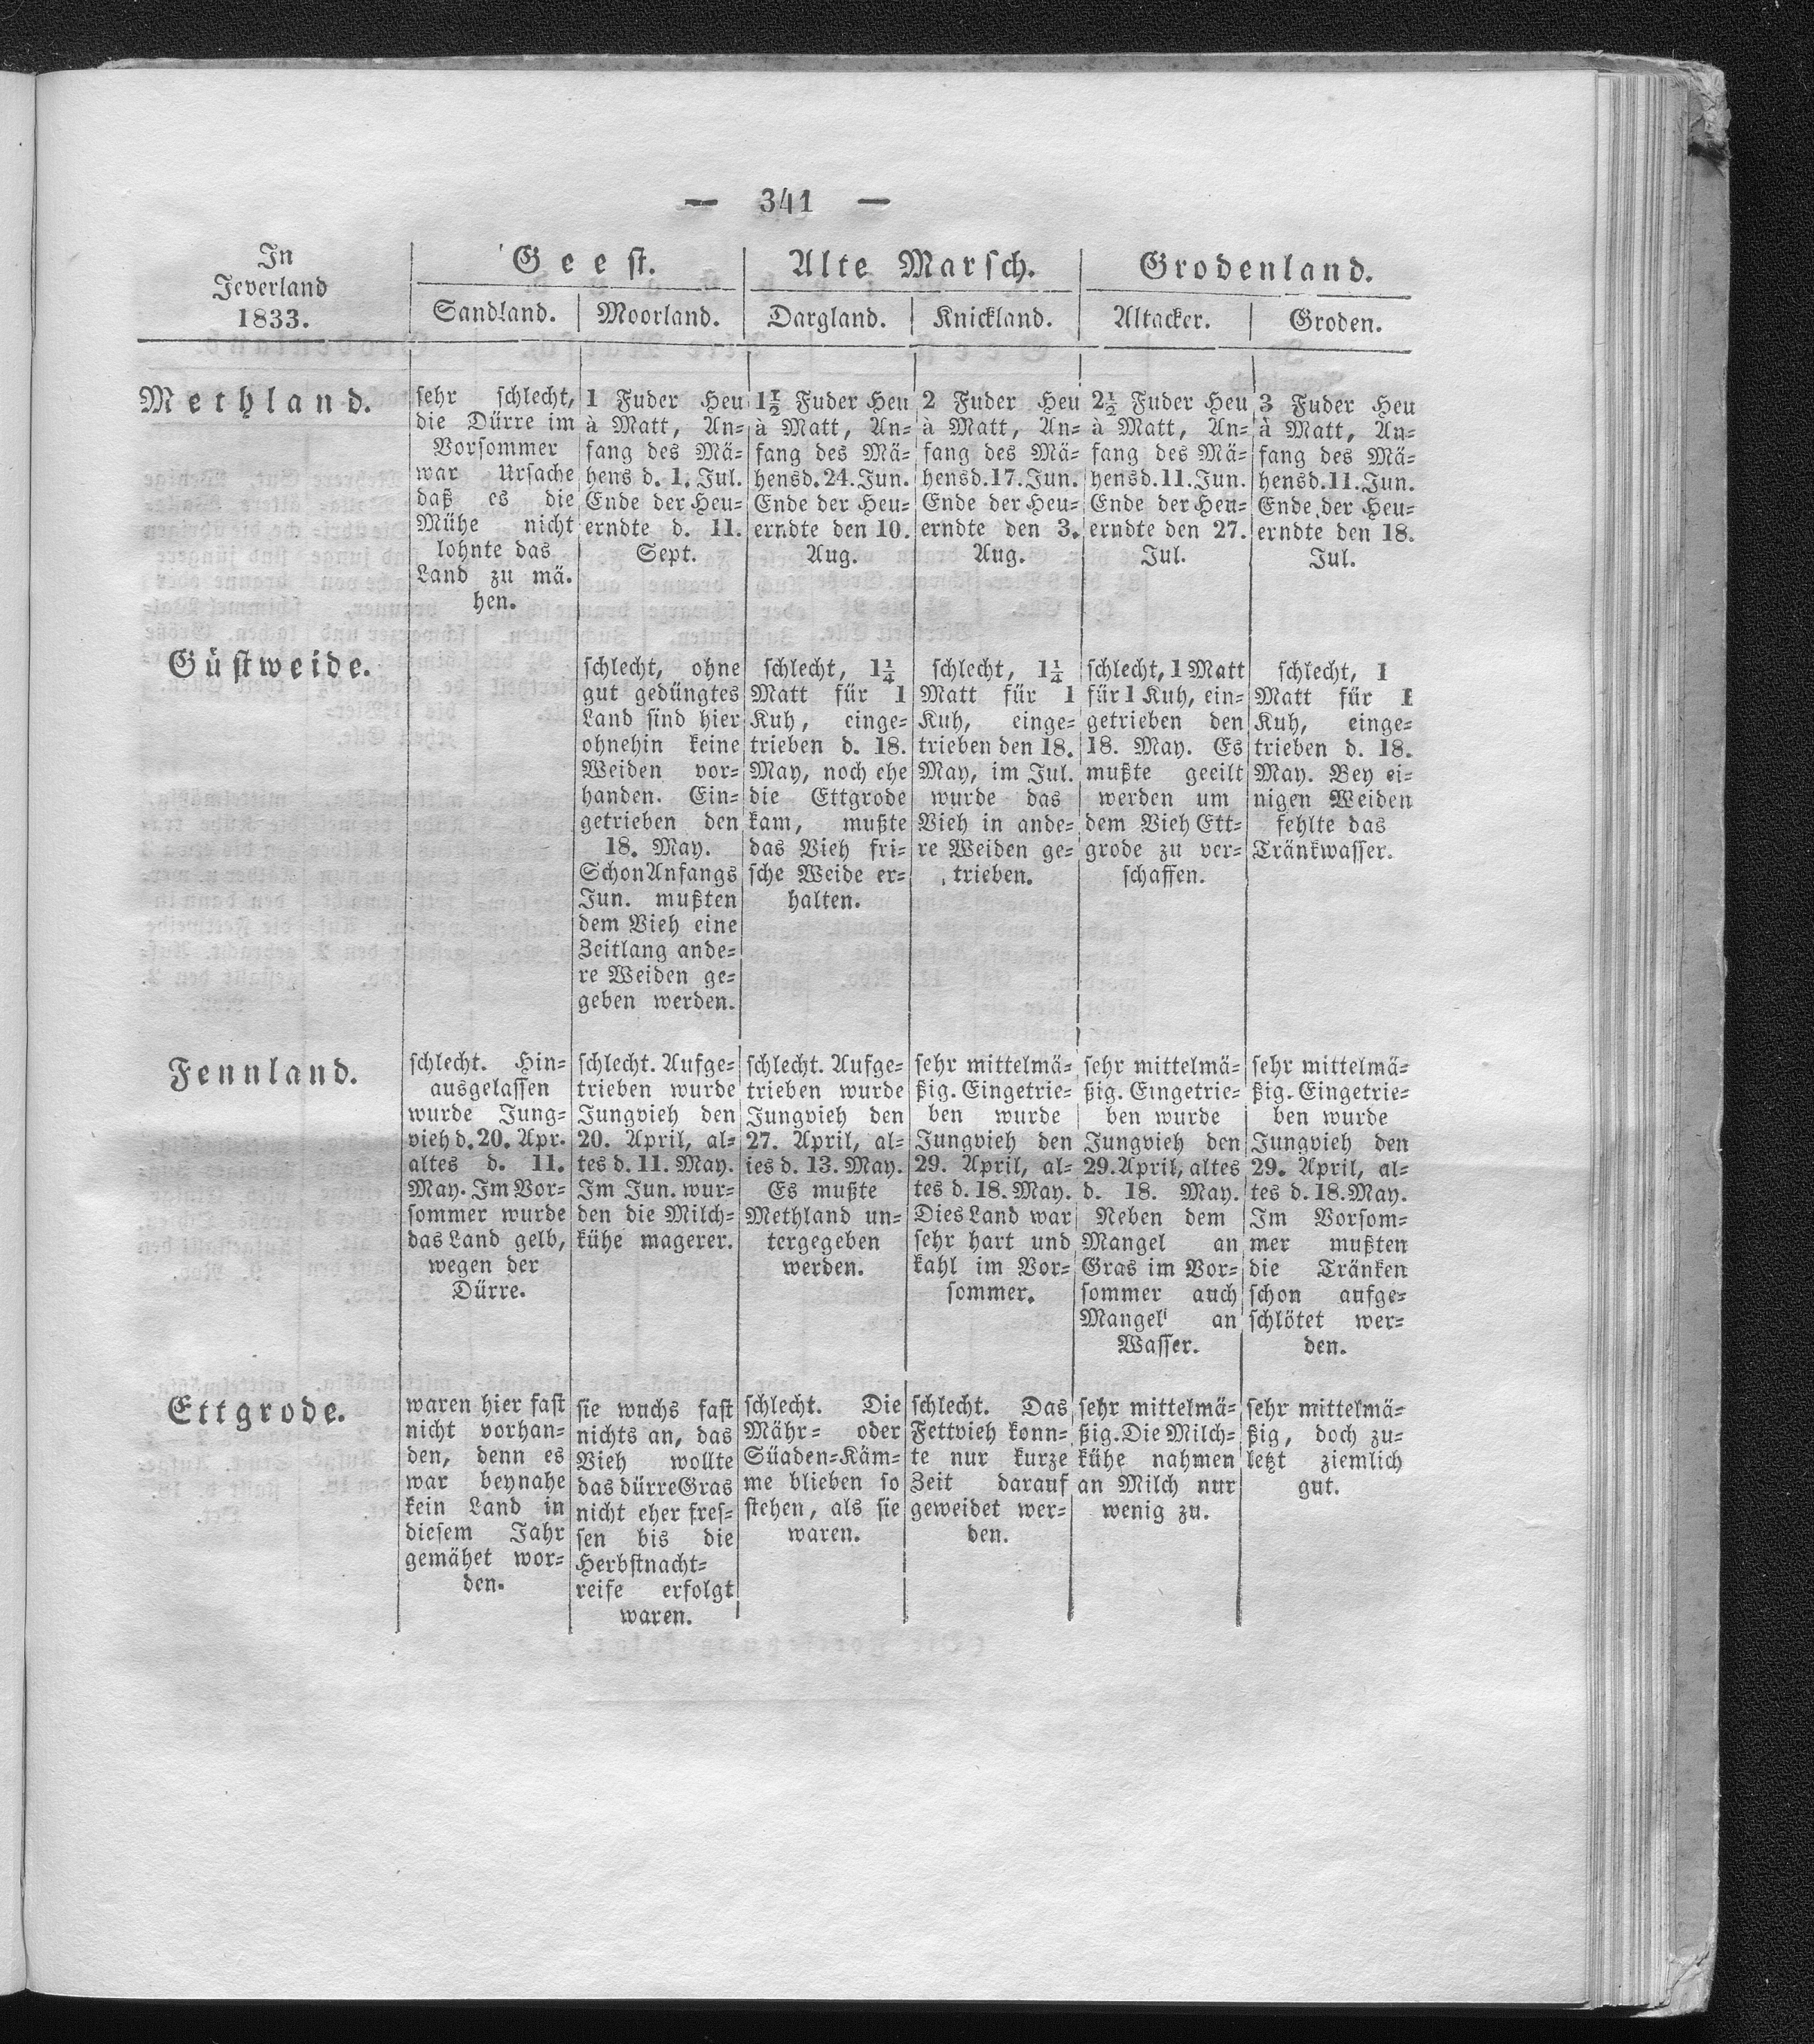 — 341 —
In
Jeverland
1833.
Geest.
Alte Marsch.
Grodenland.
Sandland.
Moorland.
Dargland.
Knickland.
Altacker.
Groden.
Methland.
sehr schlecht,
die Dürre im
Vorsommer
war Ursache
daß es die
Mühe nicht
lohnte das
Land zu mä-
hen.
1 Fuder Heu
à Matt, An-
fang des Mä-
hens d. 1. Jul.
Ende der Heu-
erndte d. 11.
Sept.
1½ Fuder Heu
à Matt, An-
fang des Mä-
hens d. 24. Jun.
Ende der Heu-
erndte den 10.
Aug.
2 Fuder Heu
à Matt, An-
fang des Mä-
hens d. 17. Jun.
Ende der Heu-
erndte den 3.
Aug.
2½ Fuder Heu
à Matt, An-
fang des Mä-
hens d. 11. Jun.
Ende der Heu-
erndte den 27.
Jul.
3 Fuder Heu
à Matt, An-
fang des Mä-
hens d. 11. Jun.
Ende der Heu-
erndte den 18.
Jul.
Güstweide.
schlecht, ohne
gut gedüngtes
Land sind hier
ohnehin keine
Weiden vor-
handen. Ein-
getrieben den
18. May.
Schon Anfangs
Jun. mußten
dem Vieh eine
Zeitlang ande-
re Weiden ge-
geben werden.
schlecht, 1¼
Matt für 1
Kuh, einge-
trieben d. 18.
May, noch ehe
die Ettgrode
kam, mußte
das Vieh fri-
sche Weide er-
halten.
schlecht, 1¼
Matt für 1
Kuh, einge-
trieben den 18.
May, im Jul.
wurde das
Vieh in ande-
re Weiden ge-
trieben.
schlecht, 1 Matt
für 1 Kuh, ein-
getrieben den
18. May. Es
mußte geeilt
werden um
dem Vieh Ett-
grode zu ver-
schaffen.
schlecht, 1
Matt für 1
Kuh, einge-
trieben d. 18.
May. Bey ei-
nigen Weiden
fehlte das
Tränkwasser.
Fennland.
schlecht. Hin-
ausgelassen
wurde Jung-
vieh d. 20. Apr.
altes d. 11.
May. Im Vor-
sommer wurde
das Land gelb,
wegen der
Dürre.
schlecht. Aufge-
trieben wurde
Jungvieh den
20. April, al-
tes d. 11. May.
Im Jun. wur-
den die Milch-
kühe magerer.
schlecht. Aufge-
trieben wurde
Jungvieh den
27. April, al-
ies d. 13. May.
Es mußte
Methland un-
tergegeben
werden.
sehr mittelmä-
ßig. Eingetrie-
ben wurde
Jungvieh den
29. April, al-
tes d. 18. May.
Dies Land war
sehr hart und
kahl im Vor-
sommer.
sehr mittelmä-
ßig. Eingetrie-
ben wurde
Jungvieh den
29. April, altes
d. 18. May.
Neben dem
Mangel an
Gras im Vor-
sommer auch
Mangel an
Wasser.
sehr mittelmä-
ßig. Eingetrie-
ben wurde
Jungvieh den
29. April, al-
tes d. 18. May.
Im Vorsom-
mer mußten
die Tränken
schon aufge-
schlötet wer-
den.
Ettgrode.
waren hier fast
nicht vorhan-
den, denn es
war beynahe
kein Land in
diesem Jahr
gemähet wor-
den.
sie wuchs fast
nichts an, das
Vieh wollte
das dürre Gras
nicht eher fres-
sen bis die
Herbstnacht-
reife erfolgt
waren.
schlecht. Die
Mähr- oder
Süaden-Käm-
me blieben so
stehen, als sie
waren.
schlecht. Das
Fettvieh konn-
te nur kurze
Zeit darauf
geweidet wer-
den.
sehr mittelmä-
ßig. Die Milch-
kühe nahmen
an Milch nur
wenig zu.
sehr mittelmä-
ßig, doch zu-
letzt ziemlich
gut.